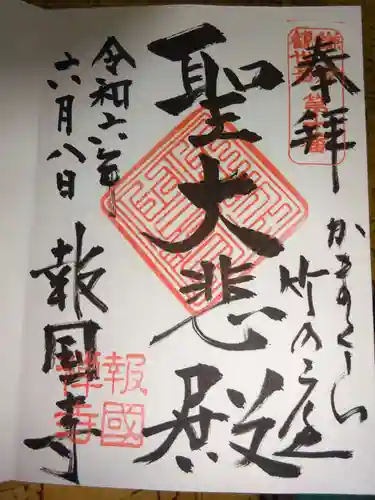 奉拝
かまくら
竹の庭
聖大悲殿
令和六年
六月八日
報国寺
報國
禅寺